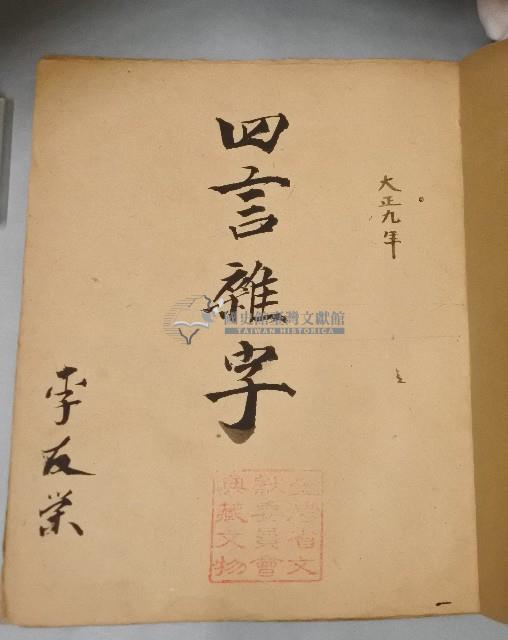 大正九年
四言雜字
國史館臺灣文獻館
TAIWAN HISTORICA
李友榮
臺灣省文
獻委員會
典藏文物